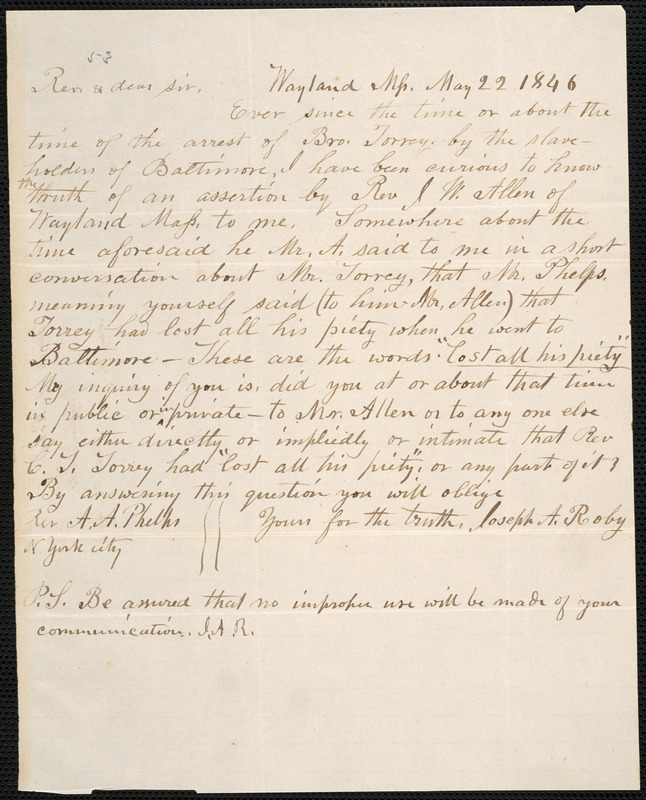 53
Rev. & dear sir. Wayland Ms. May 22 1846
Ever since the time or about the
time of the arrest of Bro. Torrey. by the slave-
holders of Baltimore, I have been curious to know
the truth of an assertion by Rev J. W. Allen of
Wayland Mass. to me. Somewhere about the
time aforesaid he Mr. A. said to me in a short
conversation about Mr. Torrey, that Mr. Phelps.
meaning yourself said (to him Mr. Allen) that
Torrey had lost all his piety when he went to
Baltimore - These are the words "lost all his piety"
My inquiry of you is. did you at or about that time
in public or in private - to Mr. Allen or to any one else
say either directly or impliedly or intimate that Rev
C. T. Torrey had "lost all his piety", or any part of it?
By answering this question you will oblige
Rev A. A. Phelps Yours for the truth, Joseph A. Roby
N York city
P. S. Be assured that no improper use will be made of your
communication. J. A. R.